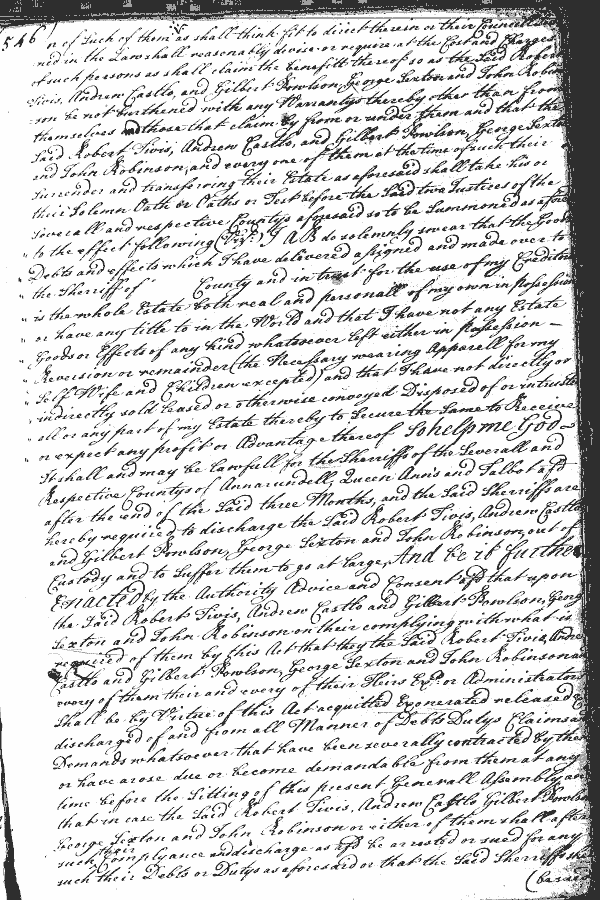 546
n of Such of them as shall think fit to direct therein or their Councill
ned in the Law shall reasonably devise or require at the Cost and Charges
of such persons as shall claim the benefitt thereof so as the Said Robert
Tivis, Andrew Castlo, and Gilbert Powlson, George Sexton and John Robin
son be not burthened with any Warrantys thereby other than from
themselves and those that claim by from or under them and that the
Said Robert Tivis, Andrew Castlo, and Gilbert Powlson, George Sexton
and John Robinson, and every one of them at the time of such their
Surrender and transferring their Estate as aforesaid shall take his or
their Solemn Oath or Oaths or Test before the Said two Justices of the
Severall and respective Countys aforesaid so to be Summoned as afore
to the effect following (Vizt.) I A B do solemnly swear that the Goods
Debts and effects which I have delivered assigned and made over to
the Sherriff of County and in trust for the use of my Creditors
is the whole Estate both real and personall of my own in possession
or have any title to in the World and that I have not any Estate
Goods or Effects of any kind whatsoever left either in possession —
Reversion or remainder (the Necessary wearing Apparell for my
Self Wife and Children excepted) and that I have not directly or
indirectly sold leased or otherwise conveyed Disposed of or intrusted
all or any part of my Estate thereby to Secure the Same to Receive
or expect any profit or Advantage thereof So help me God
It shall and may be lawfull for the Sherriffs of the Severall and
Respective Countys of Annarundell, Queen Anns and Talbot afsd
after the end of the Said three Months, and the Said Sherriffs are
hereby required to discharge the Said Robert Tivis, Andrew Castlo
and Gilbert Powlson, George Sexton and John Robinson, out of
Custody and to Suffer them to go at large, And be it further
Enacted by the Authority Advice and Consent afsd that upon
the Said Robert Tivis, Andrew Castlo and Gilbert Powlson, George
Sexton and John Robinson on their complying with what is
required of them by this Act that they the Said Robert Tivis, Andrew
Castlo and Gilbert Powlson, George Sexton and John Robinson and
every of them their and every of their Heirs Exrs. or Administrators
Shall be by Virtue of this Act acquitted Exonerated released &
discharged of and from all Manner of Debts Dutys Claims and
Demands whatsoever that have been severally contracted by them
or have arose due or become demandable from them at any
time before the Sitting of this present Generall Assembly and
that in case the Said Robert Tivis, Andrew Castlo Gilbert Powlson
George Sexton and John Robinson or either of them shall after
such their Complyance and discharge as afsd be arrested or sued for any
such their Debts or Dutys as aforesaid or that the Said Sherriffs